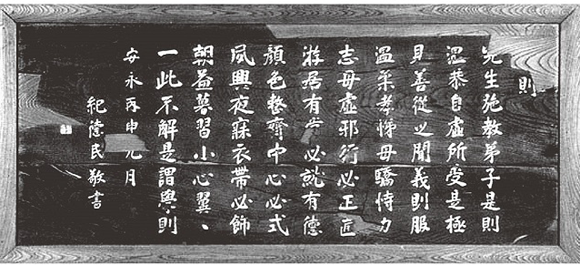 則
先生施教弟子是則
温恭自虚所受是極
見善從之聞義則服
温柔孝悌毋驕恃力
志毋虚邪行必正直
游居有常必就有德
顔色整齊中心必式
夙興夜寐衣帶必飾
朝益暮習小心翼、
一此不解是謂學則
安永丙申九月
紀德民敬書